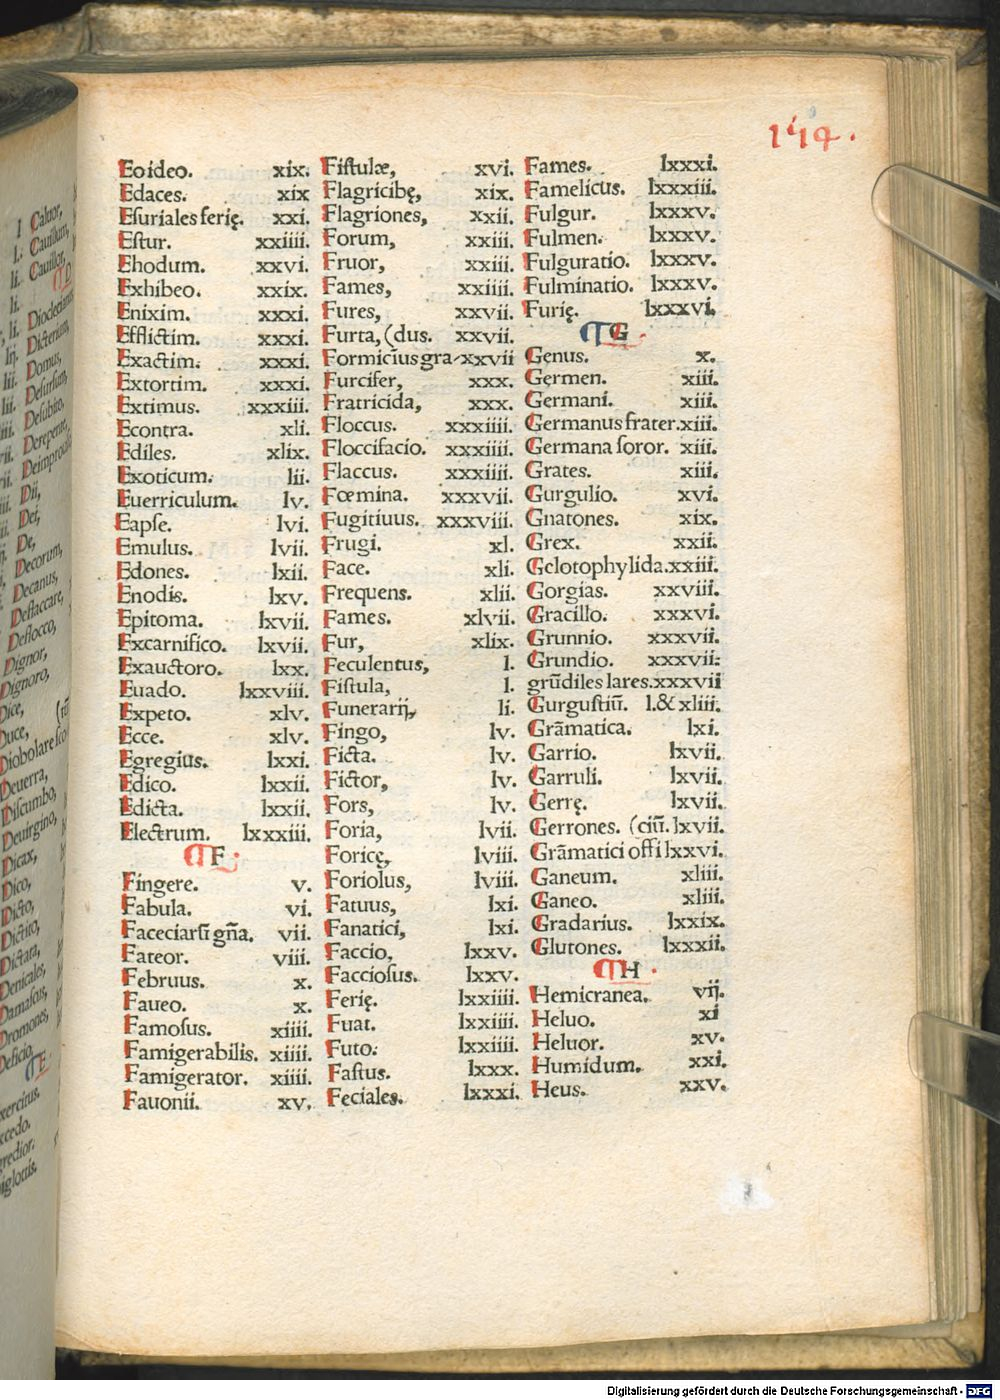 144.
Eoideo. xix.
Edaces. xix
Eſuriales ferię. xxi.
Eſtur. xxiiii.
Ehodum. xxvi.
Exhibeo. xxix.
Enixim. xxxi.
Efflictim. xxxi.
Exactim. xxxi.
Extortim. xxxi.
Extimus. xxxiii.
Econtra. xli.
Ediles. xlix.
Exoticum. lii.
Euerriculum. lv.
Eapſe. lvi.
Emulus. lvii.
Edones. lxii.
Enodis. lxv.
Epitoma. lxvii.
Excarnifico. lxvii.
Exauctoro. lxx.
Euado. lxxviii.
Expeto. xlv.
Ecce. xlv.
Egregius. lxxi.
Edico. lxxii.
Edicta. lxxii.
Electrum. lxxxiii.
¶ F.
Fingere. v.
Fabula. vi.
Faceciarū gña. vii.
Fateor. viii.
Februus. x.
Faueo. x.
Famoſus. xiiii.
Famigerabilis. xiiii.
Famigerator. xiiii.
Fauonii. xv.
Fiſtulæ, xvi.
Flagricibę, xix.
Flagriones, xxii.
Forum, xxiii.
Fruor, xxiii.
Fames, xxiiii.
Fures, xxvii.
Furta, (dus. xxvii.
Formicius gra-xxvii
Furcifer, xxx.
Fratricida, xxx.
Floccus. xxxiiii.
Floccifacio. xxxiiii.
Flaccus. xxxiiii.
Fœmina. xxxvii.
Fugitiuus. xxxviii.
Frugi. xl.
Face. xli.
Frequens. xlii.
Fames. xlvii.
Fur, xlix.
Feculentus, l.
Fiſtula, l.
Funerarij, li.
Fingo, lv.
Ficta. lv.
Fictor, lv.
Fors, lv.
Foria, lvii.
Foricę, lviii.
Foriolus, lviii.
Fatuus, lxi.
Fanatici, lxi.
Faccio, lxxv.
Faccioſus. lxxv.
Ferię. lxxiiii.
Fuat. lxxiiii.
Futo. lxxiiii.
Faſtus. lxxx.
Feciales. lxxxi.
Fames. lxxxi.
Famelicus. lxxxiii.
Fulgur. lxxxv.
Fulmen. lxxxv.
Fulguratio. lxxxv.
Fulminatio. lxxxv.
Furię. lxxxvi.
¶ G.
Genus. x.
Germen. xiii.
Germani. xiii.
Germanus frater.xiii.
Germana ſoror. xiii.
Grates. xiii.
Gurgulio. xvi.
Gnatones. xix.
Grex. xxii.
Gelotophylida.xxiii.
Gorgias. xxviii.
Gracillo. xxxvi.
Grunnio. xxxvii.
Grundio. xxxvii.
grūdiles lares.xxxvii
Gurguſtiū. l.& xliii.
Grāmatica. lxi.
Garrio. lxvii.
Garruli. lxvii.
Gerrę. lxvii.
Gerrones. (ciū. lxvii.
Grāmatici offi lxxvi.
Ganeum. xliii.
Ganeo. xliii.
Gradarius. lxxix.
Glutones. lxxxii.
¶ H.
Hemicranea. vij.
Heluo. xi
Heluor. xv.
Humidum. xxi.
Heus. xxv.
l Caluor,
l. Cauillum,
li. Cauillor,
¶ D
Domus,
Deſubito,
Derepente,
Dii,
Dei,
De,
Decorum,
Decanus,
Deſtaccare,
Deflocco,
Dignor,
Dignoro,
Deuerra,
Diſcumbo,
Deuirgino,
Dicax,
Dico,
Dicto,
Dictito,
Dictata,
Denicales,
Damaſcus,
Dromones,
Deficio.
¶ E.
Digitalisierung gefördert durch die Deutsche Forschungsgemeinschaft - DFG